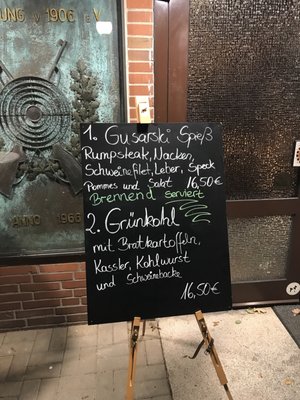 UNG v 1906 e.V.
ANNO 1966
1. Gusarski Speß
Rumpsteak, Nacken,
Schweinefilet, Leber, Speck
Pommes und Salat 16,50€
Brennend serviert
2. Grünkohl
mit Bratkartoffeln,
Kassler, Kohlwurst
und Schweinebacke
16,50€